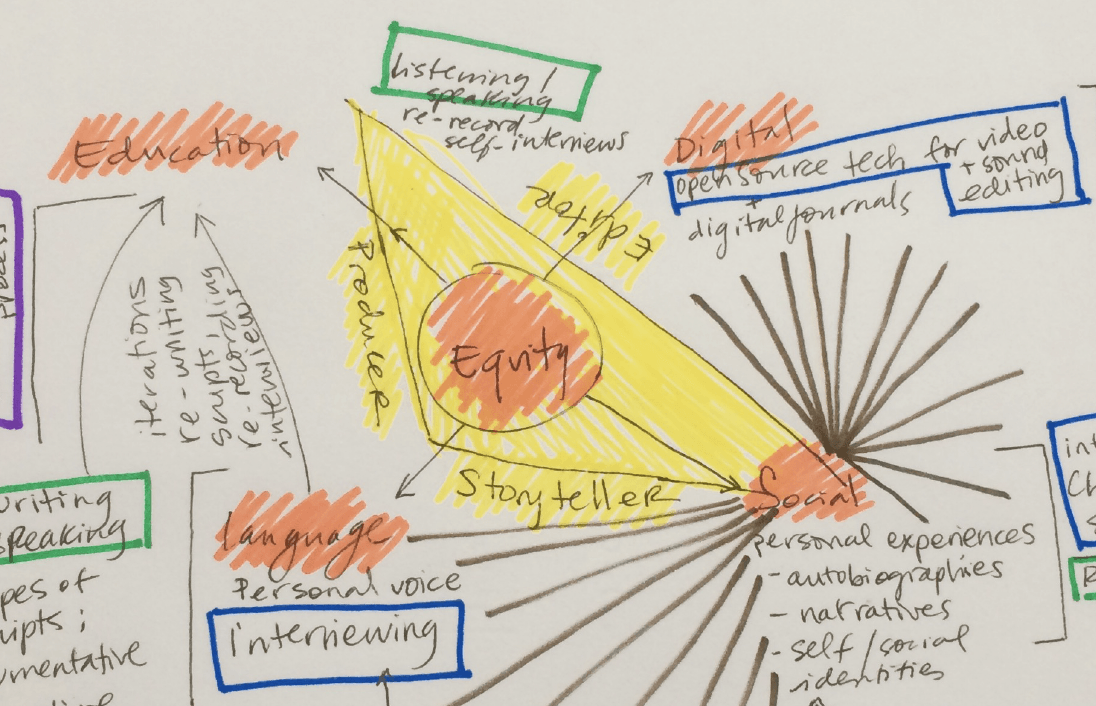 listening /
speaking
re-record
self-interviews
Education
Digital
open source tech for video
+ sound
editing
+
digital journals
Editor
Producer
Equity
Storyteller
Social
iterations
re-writing
scripts;
re-recording
interviews
process
writing
speaking
language
Personal voice
interviewing
personal experiences
- autobiographies
- narratives
- self / social
identities